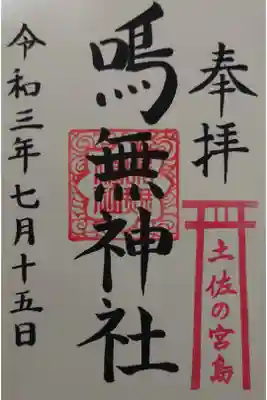 奉拝
土佐の宮島
鳴無神社
令和三年七月十五日